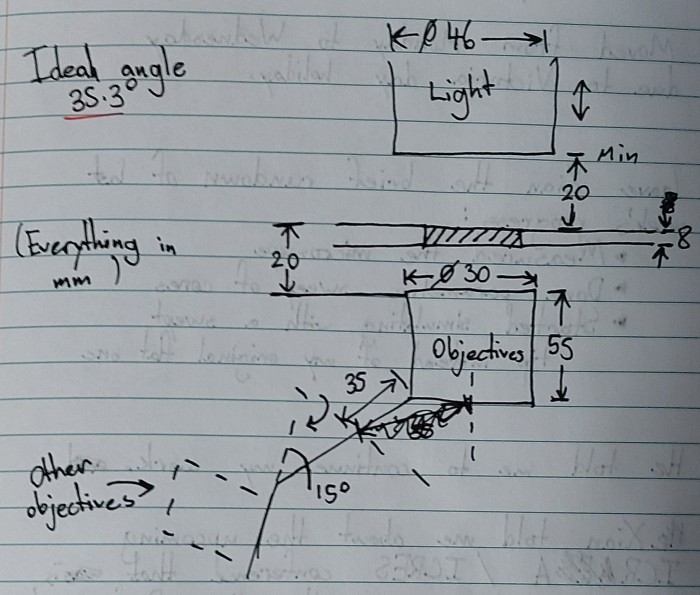 Ø 46
Ideal angle
35.3°
Light
Min
20
8
(Everything in
mm)
20
Ø 30
Objectives
55
35
15°
Other
objectives